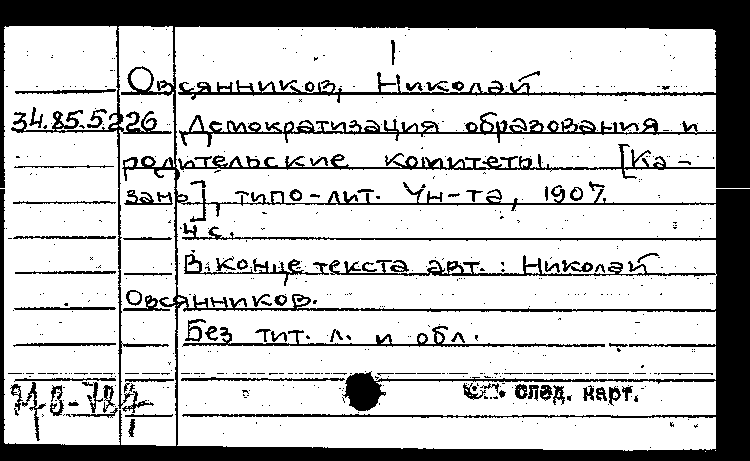 Овсянников, Николай
34.85.5.226 Демократизация образования и
родительские комитеты. [Ка-
зань], типо-лит. Ун-та, 1907.
4 с.
В конце текста авт.: Николай
Овсянников.
Без тит. л. и обл.
См. след. карт.